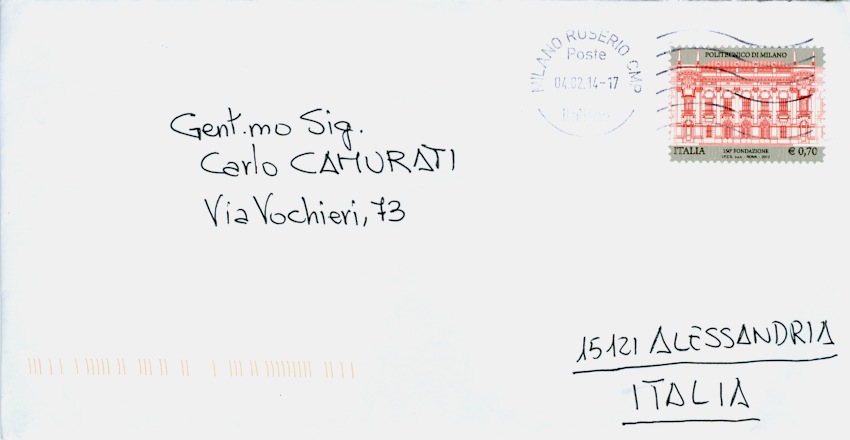 MILANO ROSERIO CMP
Poste
04.02.14-17
POLITECNICO DI MILANO
ITALIA
150° FONDAZIONE
€ 0,70
I.P.Z.S. S.p.A. - ROMA - 2013
Gent.mo Sig.
Carlo CAMURATI
Via Vochieri, 73
15121 ALESSANDRIA
ITALIA